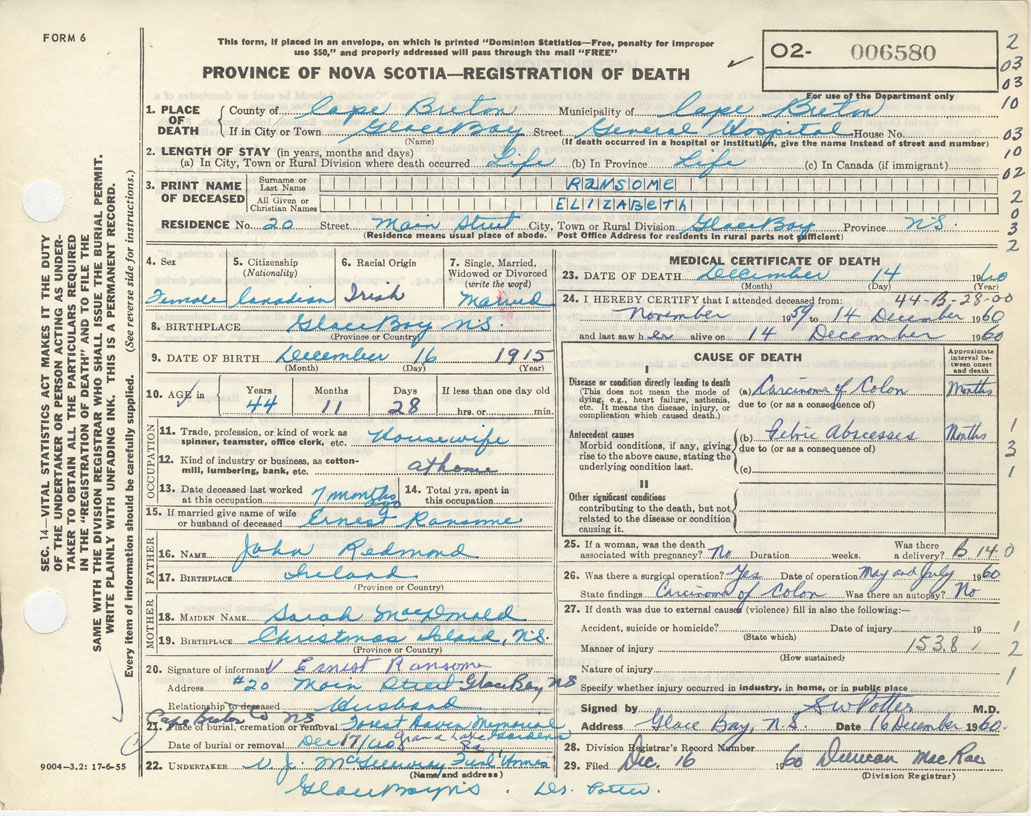 FORM 6
This form, if placed in an envelope, on which is printed "Dominion Statistics—Free, penalty for improper
use $50," and properly addressed will pass through the mail "FREE"
PROVINCE OF NOVA SCOTIA—REGISTRATION OF DEATH
O2- 006580
For use of the Department only
2
03
03
10
03
10
02
2
0
3
2
1. PLACE OF DEATH
County of Cape Breton Municipality of Cape Breton
If in City or Town Glace Bay Street General Hospital House No.
(Name) (If death occurred in a hospital or Institution, give the name instead of street and number)
2. LENGTH OF STAY (in years, months and days)
(a) In City, Town or Rural Division where death occurred Life (b) In Province Life (c) In Canada (if immigrant)
3. PRINT NAME OF DECEASED
Surname or Last Name RANSOME
All Given or Christian Names ELIZABETH
RESIDENCE No. 20 Street Main Street City, Town or Rural Division Glace Bay Province NS.
(Residence means usual place of abode. Post Office Address for residents in rural parts not sufficient)
4. Sex Female
5. Citizenship (Nationality) Canadian
6. Racial Origin Irish
7. Single, Married, Widowed or Divorced (write the word) Married
8. BIRTHPLACE Glace Bay NS.
(Province or Country)
9. DATE OF BIRTH December 16 1915
(Month) (Day) (Year)
10. AGE in Years 44 Months 11 Days 28 If less than one day old hrs. or min.
OCCUPATION
11. Trade, profession, or kind of work as spinner, teamster, office clerk, etc. Housewife
12. Kind of industry or business, as cotton-mill, lumbering, bank, etc. at home
13. Date deceased last worked at this occupation 7 months
14. Total yrs. spent in this occupation
15. If married give name of wife or husband of deceased Ernest Ransome
FATHER
16. NAME John Redmond
17. BIRTHPLACE Ireland
(Province or Country)
MOTHER
18. MAIDEN NAME Sarah MacDonald
19. BIRTHPLACE Christmas Island, N.S.
(Province or Country)
20. Signature of informant Ernest Ransome
Address #20 Main Street Glace Bay NS
Relationship to deceased Husband
Cape Breton Co NS
21. Place of burial, cremation or removal Forest Haven Memorial Gardens
Date of burial or removal Dec 17/60 Grand Lake Rd
22. UNDERTAKER V. J. McGillivray Fun'l Homes
(Name and address)
Glace Bay NS. Dr. Potter.
MEDICAL CERTIFICATE OF DEATH
23. DATE OF DEATH December 14 1960
(Month) (Day) (Year)
24. I HEREBY CERTIFY that I attended deceased from: 44-B-28-00
November 1959 to 14 December 1960
and last saw her alive on 14 December 1960
CAUSE OF DEATH
Approximate interval between onset and death
I
Disease or condition directly leading to death
(This does not mean the mode of dying, e.g., heart failure, asthenia, etc. It means the disease, injury, or complication which caused death.)
(a) Carcinoma of Colon Months
due to (or as a consequence of)
Antecedent causes
Morbid conditions, if any, giving rise to the above cause, stating the underlying condition last.
(b) Pelvic Abscesses Months
due to (or as a consequence of)
(c)
II
Other significant conditions
contributing to the death, but not related to the disease or condition causing it.
1
3
1
25. If a woman, was the death associated with pregnancy? No Duration weeks. Was there a delivery? B 14 0
26. Was there a surgical operation? Yes Date of operation May and July 1960
State findings Carcinoma of Colon Was there an autopsy? No
27. If death was due to external cause (violence) fill in also the following:—
Accident, suicide or homicide? Date of injury 19 1
(State which)
Manner of injury 153.8 2
(How sustained)
Nature of injury 1
Specify whether injury occurred in industry, in home, or in public place
Signed by S W Potter M.D.
Address Glace Bay, N.S. Date 16 December 1960.
28. Division Registrar's Record Number
29. Filed Dec. 16 1960 Duncan MacRae
(Division Registrar)
SEC. 14—VITAL STATISTICS ACT MAKES IT THE DUTY
OF THE UNDERTAKER OR PERSON ACTING AS UNDER-
TAKER TO OBTAIN ALL THE PARTICULARS REQUIRED
IN THE "REGISTRATION OF DEATH" AND TO FILE THE
SAME WITH THE DIVISION REGISTRAR WHO SHALL ISSUE THE BURIAL PERMIT.
WRITE PLAINLY WITH UNFADING INK. THIS IS A PERMANENT RECORD.
Every item of information should be carefully supplied. (See reverse side for instructions.)
9004-3.2: 17-6-55